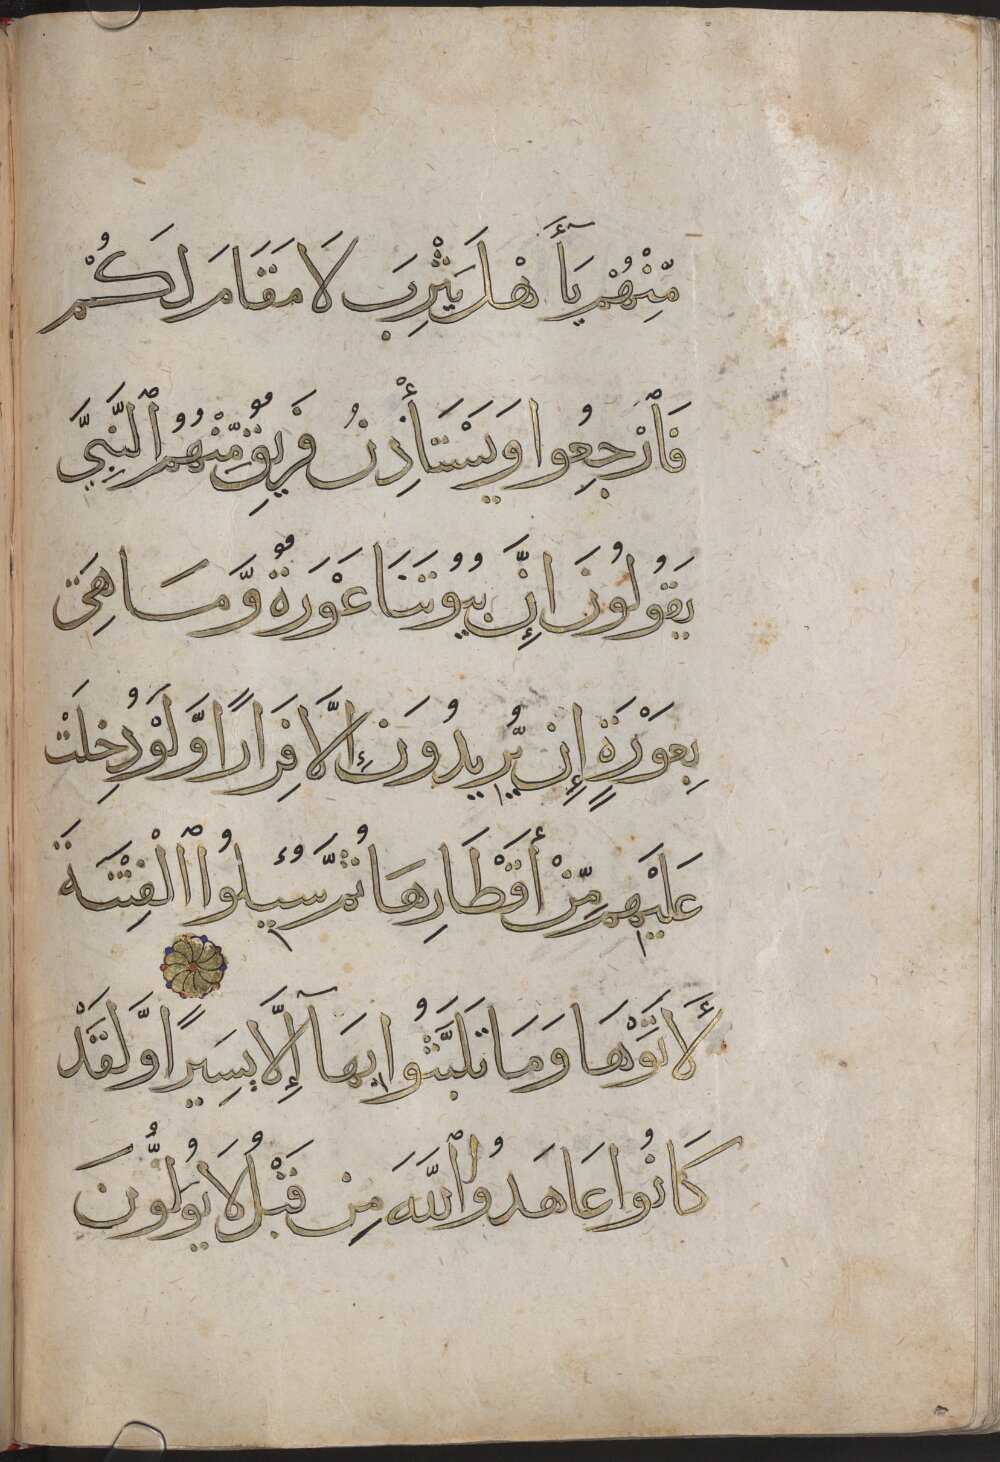 مِّنْهُمْ يَٰٓأَهْلَ يَثْرِبَ لَا مَقَامَ لَكُمْ
فَٱرْجِعُوا وَيَسْتَأْذِنُ فَرِيقٌ مِّنْهُمُ ٱلنَّبِيَّ
يَقُولُونَ إِنَّ بُيُوتَنَا عَوْرَةٌ وَّمَا هِيَ
بِعَوْرَةٍ إِن يُّرِيدُونَ إِلَّا فِرَارًا وَّلَوْ دُخِلَتْ
عَلَيْهِم مِّنْ أَقْطَارِهَا ثُمَّ سُئِلُوا ٱلْفِتْنَةَ
لَأَتَوْهَا وَمَا تَلَبَّثُوا بِهَآ إِلَّا يَسِيرًا وَّلَقَدْ
كَانُوا عَاهَدُوا ٱللَّهَ مِن قَبْلُ لَا يُوَلُّونَ